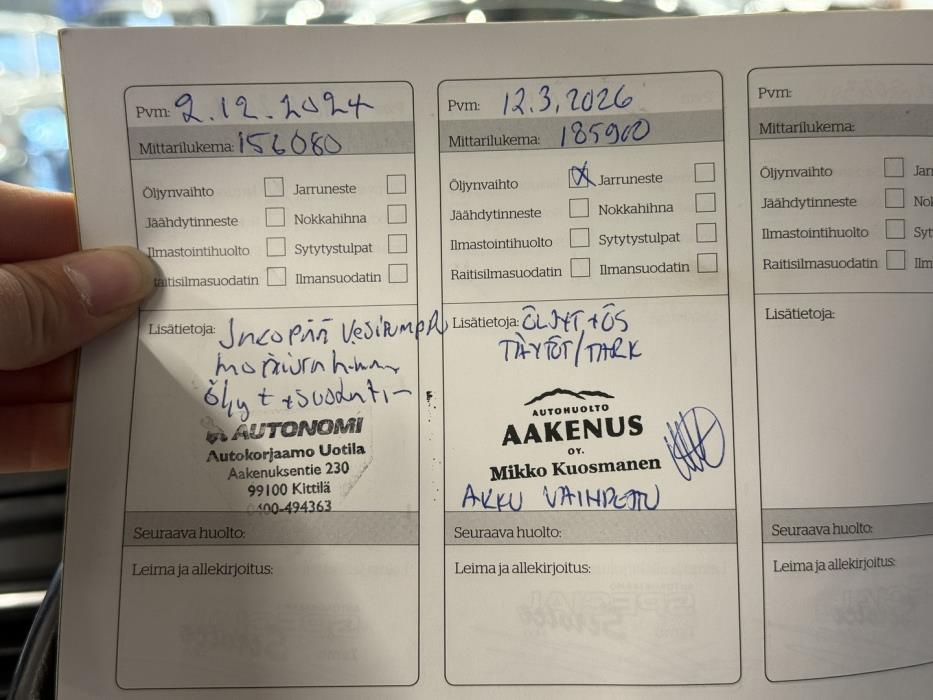 Pvm: 2.12.2024
Mittarilukema: 156080
Öljynvaihto Jarruneste
Jäähdytinneste Nokkahihna
Ilmastointihuolto Sytytystulpat
Raitisilmasuodatin Ilmansuodatin
Lisätietoja: Jakopää Vesipumppu
öljyt + suodatin
AUTONOMI
Autokorjaamo Uotila
Aakenuksentie 230
99100 Kittilä
0400-494363
Seuraava huolto:
Leima ja allekirjoitus:
Pvm: 12.3.2026
Mittarilukema: 185900
Öljynvaihto X Jarruneste
Jäähdytinneste Nokkahihna
Ilmastointihuolto Sytytystulpat
Raitisilmasuodatin Ilmansuodatin
Lisätietoja: ÖLJYT + ÖS
TÄYTÖT/TARK
AUTOHUOLTO
AAKENUS
OY.
Mikko Kuosmanen
AKKU VAIHDETTU
Seuraava huolto:
Leima ja allekirjoitus:
Pvm:
Mittarilukema:
Öljynvaihto Jar
Jäähdytinneste Nok
Ilmastointihuolto Syt
Raitisilmasuodatin Ilm
Lisätietoja:
Seuraava huolto:
Leima ja allekirjoitus: